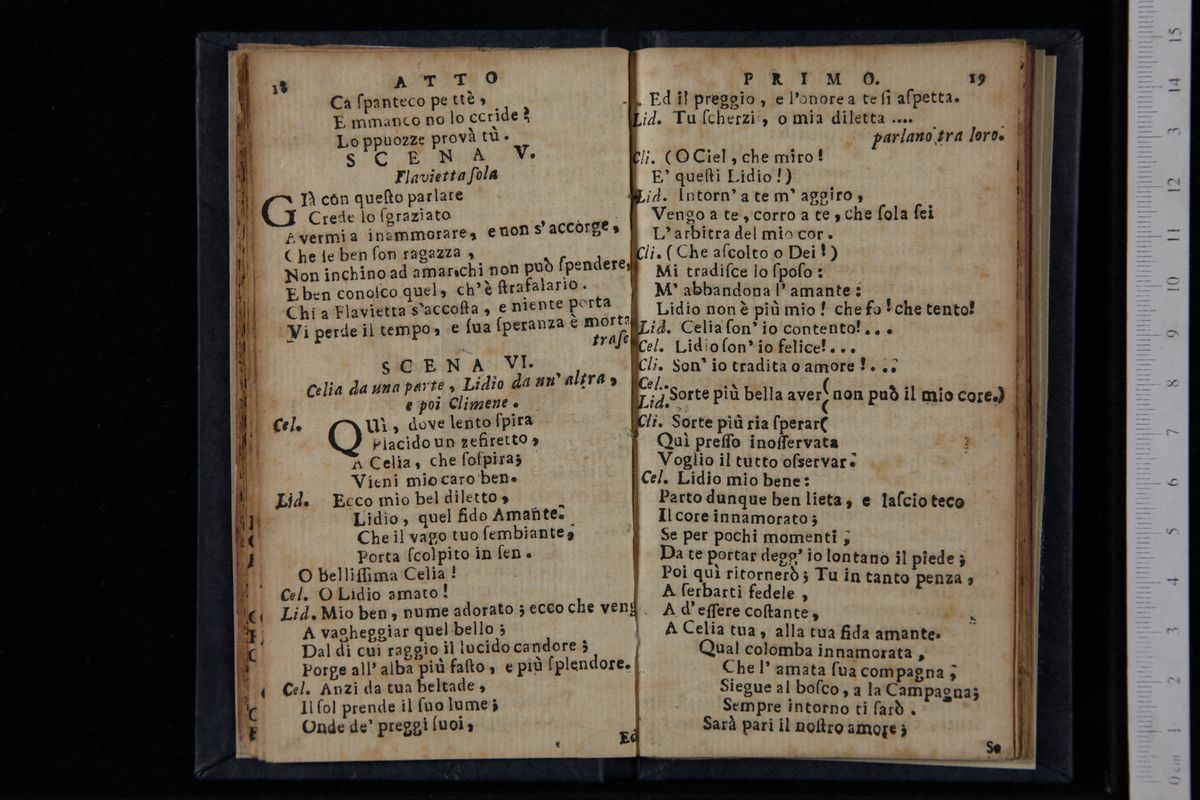 18 ATTO
Ca ſpanteco pe ttè,
E mmanco no lo ccride?
Lo ppuozze provà tù.
SCENA V.
Flavietta ſola
GIà con queſto parlare
Crede lo ſgraziato
Avermi a inammorare, e non s'accorge,
Che ſe ben ſon ragazza,
Non inchino ad amar, chi non può ſpendere,
E ben conoſco quel, ch'è ſtrafalario.
Chi a Flavietta s'accoſta, e niente porta
Vi perde il tempo, e ſua ſperanza è morta
traſe
SCENA VI.
Celia da una parte, Lidio da un' altra,
e poi Climene.
Cel. QUì, dove lento ſpira
Placido un zefiretto,
A Celia, che ſoſpira;
Vieni mio caro ben.
Lid. Ecco mio bel diletto,
Lidio, quel fido Amante.
Che il vago tuo ſembiante,
Porta ſcolpito in ſen.
O belliſſima Celia!
Cel. O Lidio amato!
Lid. Mio ben, nume adorato; ecco che veng
A vagheggiar quel bello;
Dal di cui raggio il lucido candore;
Porge all' alba più faſto, e più ſplendore.
Cel. Anzi da tua beltade,
Il ſol prende il ſuo lume;
Onde de' preggi ſuoi,
Ed
PRIMO. 19
Ed il preggio, e l'onore a te ſi aſpetta.
Lid. Tu ſcherzi, o mia diletta ....
parlano tra loro.
Cli. (O Ciel, che miro!
E' queſti Lidio!)
Lid. Intorn' a te m' aggiro,
Vengo a te, corro a te, che ſola ſei
L' arbitra del mio cor.
Cli. (Che aſcolto o Dei!)
Mi tradiſce lo ſpoſo:
M' abbandona l' amante:
Lidio non è più mio! che fo! che tento!
Lid. Celia ſon' io contento!...
Cel. Lidio ſon' io felice!...
Cli. Son' io tradita o amore!...
Cel.
Lid. Sorte più bella aver (non può il mio core.)
Cli. Sorte più ria ſperar(
Quì preſſo inoſſervata
Voglio il tutto oſservar.
Cel. Lidio mio bene:
Parto dunque ben lieta, e laſcio teco
Il core innamorato;
Se per pochi momenti;
Da te portar degg' io lontano il piede;
Poi quì ritornerò; Tu in tanto penza,
A ſerbarti fedele,
A d'eſſere coſtante,
A Celia tua, alla tua fida amante.
Qual colomba innamorata,
Che l' amata ſua compagna;
Siegue al boſco, a la Campagna;
Sempre intorno ti ſarò.
Sarà pari il noſtro amore;
Se